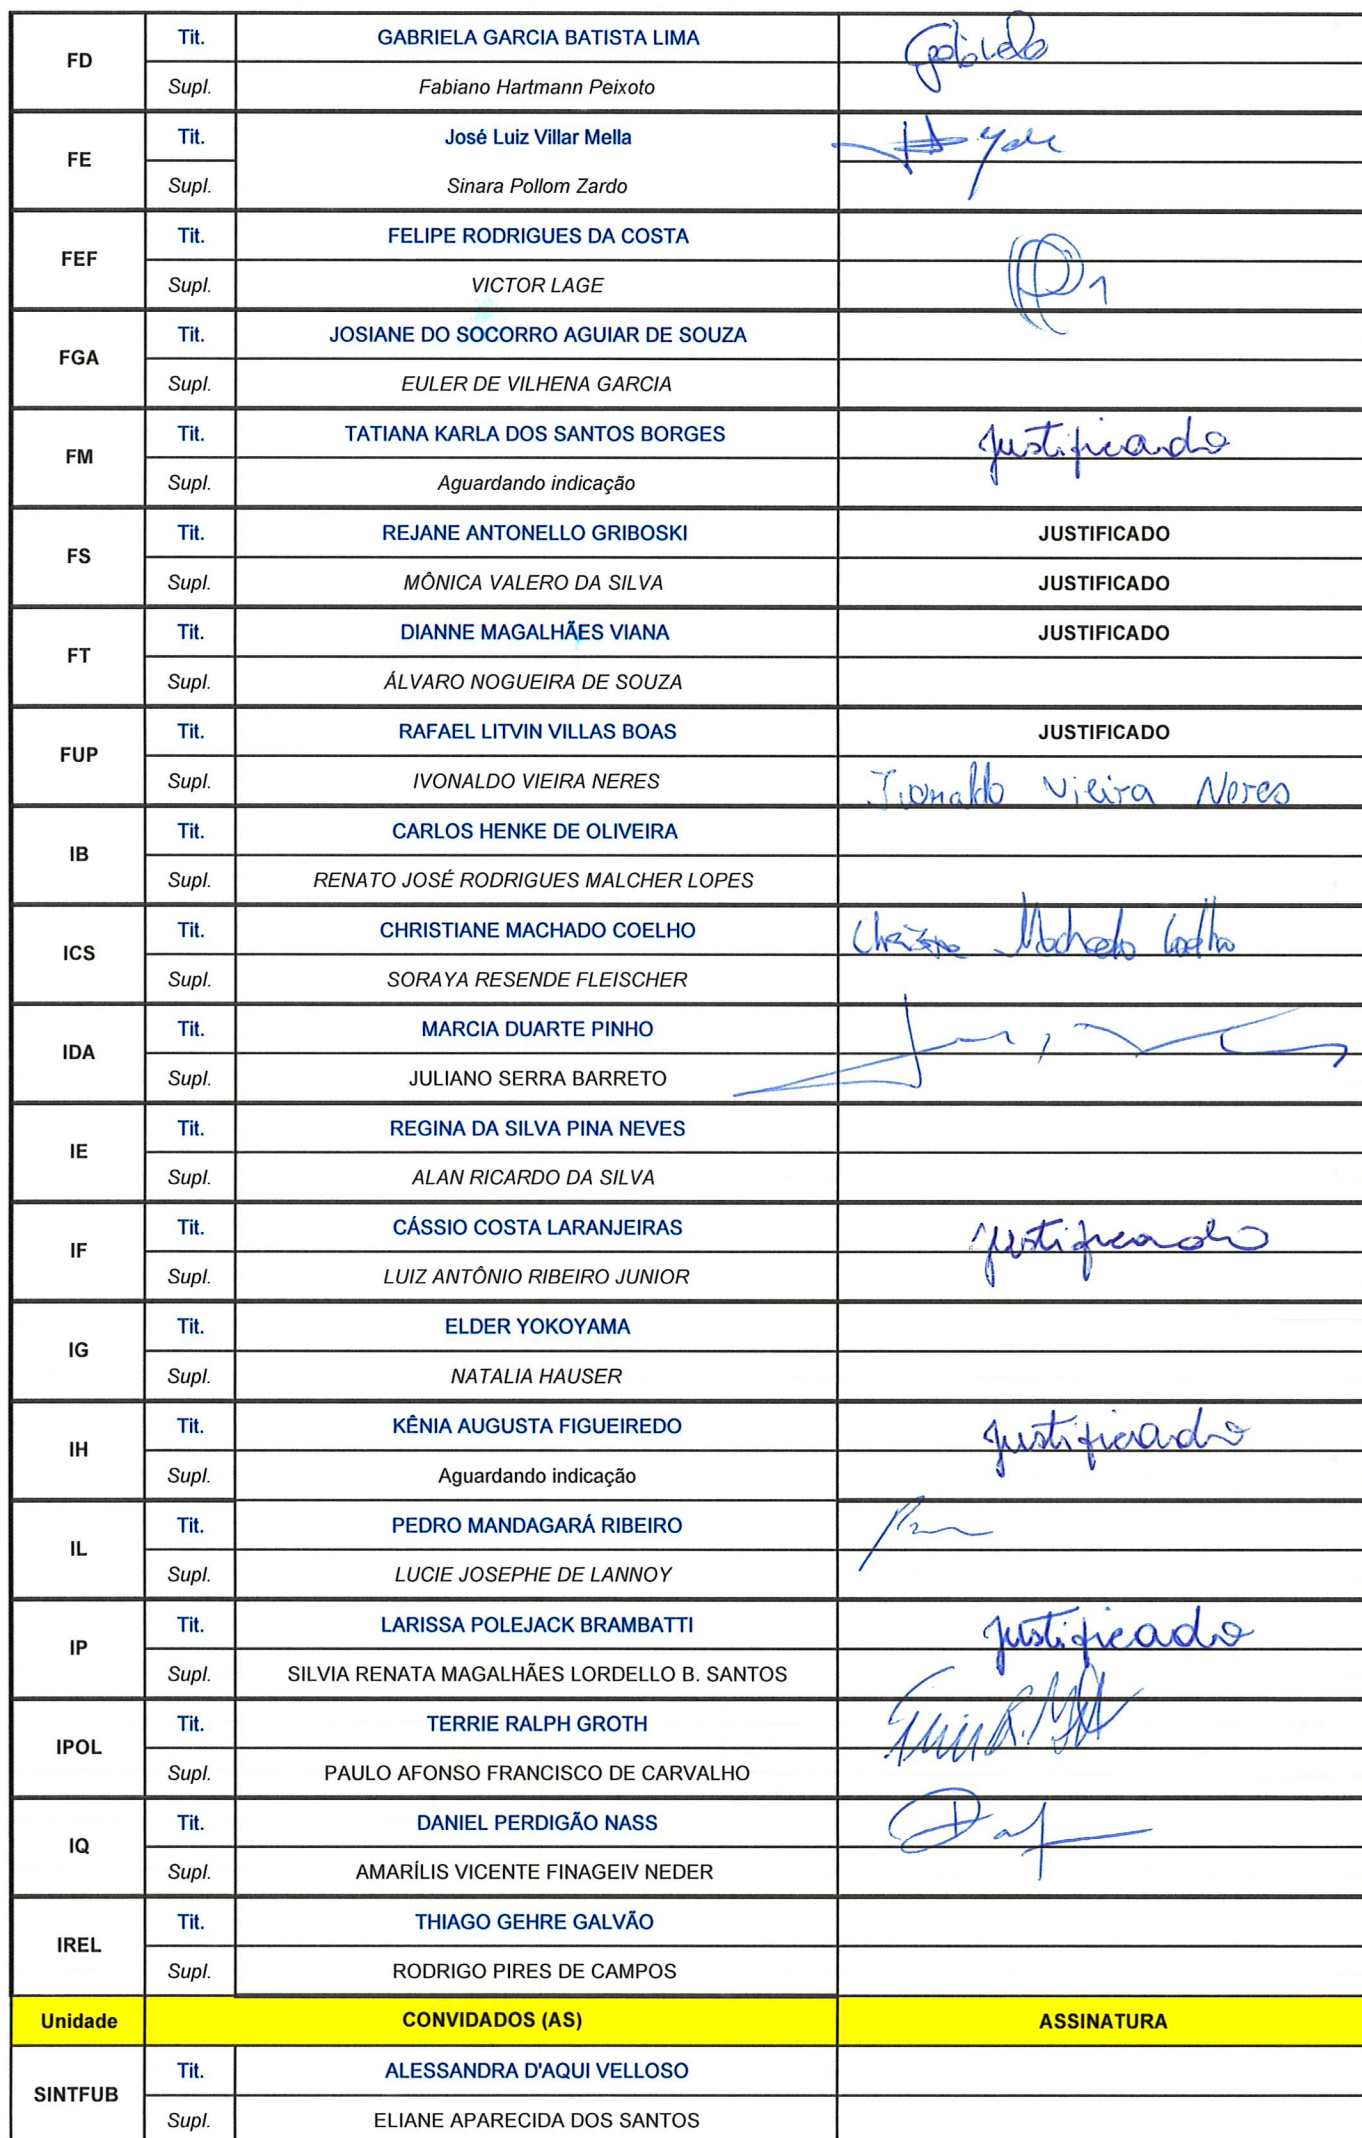 FD Tit. GABRIELA GARCIA BATISTA LIMA Gabriela
Supl. Fabiano Hartmann Peixoto
FE Tit. José Luiz Villar Mella
Supl. Sinara Pollom Zardo
FEF Tit. FELIPE RODRIGUES DA COSTA
Supl. VICTOR LAGE
FGA Tit. JOSIANE DO SOCORRO AGUIAR DE SOUZA
Supl. EULER DE VILHENA GARCIA
FM Tit. TATIANA KARLA DOS SANTOS BORGES Justificado
Supl. Aguardando indicação
FS Tit. REJANE ANTONELLO GRIBOSKI JUSTIFICADO
Supl. MÔNICA VALERO DA SILVA JUSTIFICADO
FT Tit. DIANNE MAGALHÃES VIANA JUSTIFICADO
Supl. ÁLVARO NOGUEIRA DE SOUZA
FUP Tit. RAFAEL LITVIN VILLAS BOAS JUSTIFICADO
Supl. IVONALDO VIEIRA NERES Ivonaldo Vieira Neres
IB Tit. CARLOS HENKE DE OLIVEIRA
Supl. RENATO JOSÉ RODRIGUES MALCHER LOPES
ICS Tit. CHRISTIANE MACHADO COELHO Christiane Machado Coelho
Supl. SORAYA RESENDE FLEISCHER
IDA Tit. MARCIA DUARTE PINHO
Supl. JULIANO SERRA BARRETO
IE Tit. REGINA DA SILVA PINA NEVES
Supl. ALAN RICARDO DA SILVA
IF Tit. CÁSSIO COSTA LARANJEIRAS justificado
Supl. LUIZ ANTÔNIO RIBEIRO JUNIOR
IG Tit. ELDER YOKOYAMA
Supl. NATALIA HAUSER
IH Tit. KÊNIA AUGUSTA FIGUEIREDO justificado
Supl. Aguardando indicação
IL Tit. PEDRO MANDAGARÁ RIBEIRO
Supl. LUCIE JOSEPHE DE LANNOY
IP Tit. LARISSA POLEJACK BRAMBATTI justificado
Supl. SILVIA RENATA MAGALHÃES LORDELLO B. SANTOS
IPOL Tit. TERRIE RALPH GROTH
Supl. PAULO AFONSO FRANCISCO DE CARVALHO
IQ Tit. DANIEL PERDIGÃO NASS
Supl. AMARÍLIS VICENTE FINAGEIV NEDER
IREL Tit. THIAGO GEHRE GALVÃO
Supl. RODRIGO PIRES DE CAMPOS
Unidade CONVIDADOS (AS) ASSINATURA
SINTFUB Tit. ALESSANDRA D'AQUI VELLOSO
Supl. ELIANE APARECIDA DOS SANTOS